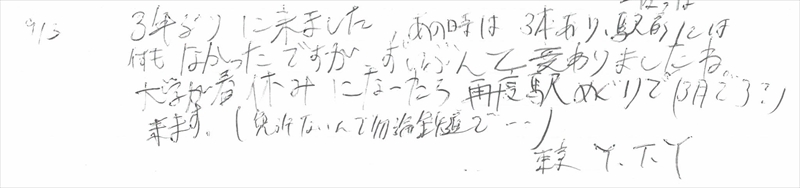 9/13
3年ぶりに来ました。あの時は3本あり、駅前には
何もなかったですが ずいぶんと変わりましたね
大学が春休みになったら再度駅めぐりで(3月で3?)
来ます。(免許ないんで勿論鉄道で…)
東京 Y.T.Y